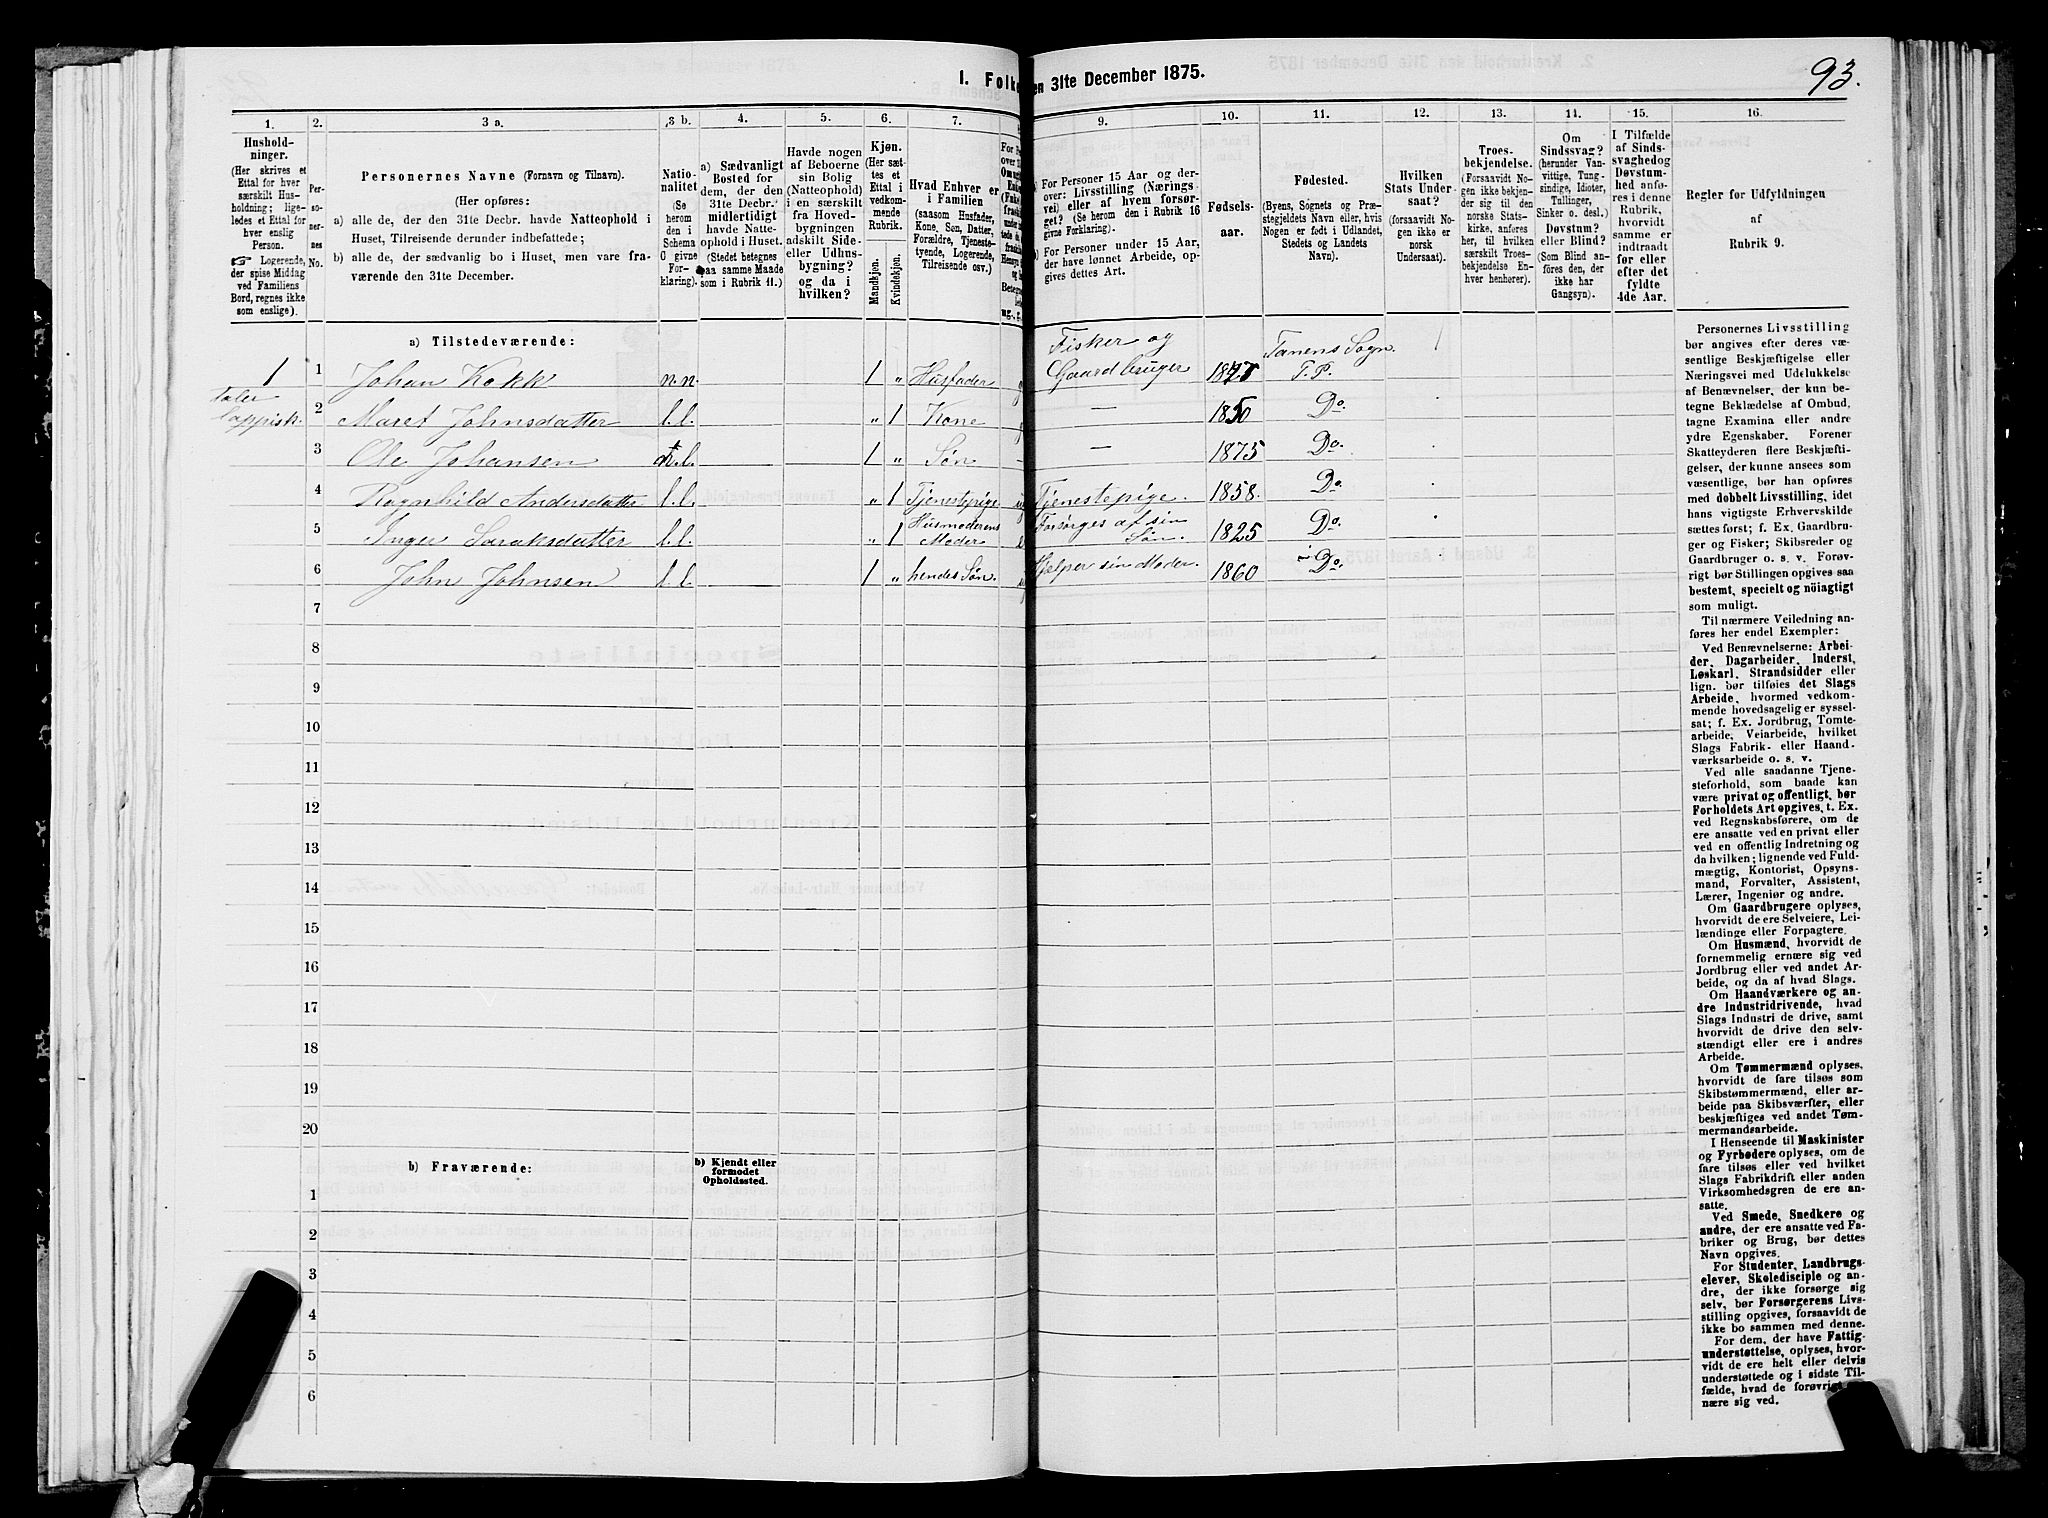 I. Folke
en 31te December 1875.
93.
1.
Hushold-
ninger.
(Her skrives et
Ettal for hver
særskilt Hus-
holdning; lige-
ledes et Ettal for
hver enslig
Person.
☞ Logerende,
der spise Middag
ved Familiens
Bord, regnes ikke
som enslige).
2.
Per-
so-
ner-
nes
No.
3 a.
Personernes Navne (Fornavn og Tilnavn).
(Her opføres:
a) alle de, der den 31te Decbr. havde Natteophold i
Huset, Tilreisende derunder indbefattede;
b) alle de, der sædvanlig bo i Huset, men vare fra-
værende den 31te December.
3 b.
Natio-
nalitet
(Se
herom
den i
Schema
C givne
For-
klaring).
4.
a) Sædvanligt
Bosted for
dem, der den
31te Decbr.
midlertidigt
havde Natte-
ophold i Huset.
(Stedet betegnes
paa samme Maade
som i Rubrik 11.)
5.
Havde nogen
af Beboerne
sin Bolig
(Natteophold)
i en særskilt
fra Hoved-
bygningen
adskilt Side-
eller Udhus-
bygning?
og da i
hvilken?
6.
Kjøn.
(Her sæt-
tes et
Ettal i
vedkom-
mende
Rubrik.
Mandkjøn.
Kvindekjøn.
7.
Hvad Enhver er
i Familien
(saasom Husfader,
Kone, Søn, Datter,
Forældre, Tjeneste-
tyende, Logerende,
Tilreisende osv.)
9.
a) For Personer 15 Aar og der-
over: Livsstilling (Nærings-
vei) eller af hvem forsør-
get? (Se herom den i Rubrik 16
givne Forklaring).
b) For Personer under 15 Aar,
der have lønnet Arbeide, op-
gives dettes Art.
10.
Fødsels-
aar.
11.
Fødested.
(Byens, Sognets og Præ-
stegjeldets Navn eller, hvis
Nogen er født i Udlandet,
Stedets og Landets
Navn).
12.
Hvilken
Stats Under-
saat?
(forsaavidt No-
gen ikke er
norsk
Undersaat).
13.
Troes-
bekjendelse.
(Forsaavidt No-
gen ikke bekjen-
der sig til den
norske Stats-
kirke, anføres
her, til hvilken
særskilt Troes-
bekjendelse En-
hver henhører).
14.
Om
Sindssvag?
(herunder Van-
vittige, Tung-
sindige, Idioter,
Tullinger,
Sinker o. desl.)
Døvstum?
eller Blind?
(Som Blind an-
føres den, der
ikke har
Gangsyn).
15.
I Tilfælde
af Sinds-
svaghed og
Døvstum-
hed anfø-
res i denne
Rubrik,
hvorvidt
samme er
indtraadt
før eller
efter det
fyldte
4de Aar.
16.
Regler for Udfyldningen
af
Rubrik 9.
a) Tilstedeværende:
1 1 Johan Kokk n.n. 1 „ Husfader Fisker og Gaardbruger Tanens Sogn. T. P.
taler
lappisk.
2 Maret Johnsdatter l.l. „ 1 Kone — 1850 Do.
3 Ole Johansen 1 „ Søn — 1875 Do.
4 Ragnhild Andersdatter l.l. „ 1 Tjenestepige Tjenestepige. 1858. Do
5 Inger Saraksdatter l.l. „ 1 Husmoderens Moder Forsørges af sin Søn. 1825 Do
6 John Johnsen l.l. 1 „ hendes Søn. Hjelper sin Moder. 1860 Do.
7
8
9
10
11
12
13
14
15
16
17
18
19
20
b) Fraværende:
b) Kjendt eller
formodet
Opholdssted.
1
2
3
4
5
6
Personernes Livsstilling
bør angives efter deres væ-
sentlige Beskjæftigelse eller
Næringsvei med Udelukkelse
af Benævnelser, der kun be-
tegne Beklædelse af Ombud,
tagne Examina eller andre
ydre Egenskaber. Forener
Skatteyderen flere Beskjæfti-
gelser, der kunne ansees som
væsentlige, bør han opføres
med dobbelt Livsstilling, idet
hans vigtigste Erhvervskilde
sættes først; f. Ex. Gaardbru-
ger og Fisker; Skibsreder og
Gaardbruger o. s. v. Forøv-
rigt bør Stillingen opgives saa
bestemt, specielt og nöiagtigt
som muligt.
Til nærmere Veiledning an-
føres her endel Exempler:
Ved Benævnelserne: Arbei-
der, Dagarbeider, Inderst,
Løskarl, Strandsidder eller
lign. bør tilføies det Slags
Arbeide, hvormed vedkom-
mende hovedsagelig er syssel-
sat; f. Ex. Jordbrug, Tomte-
arbeide, Veiarbeide, hvilket
Slags Fabrik- eller Haand-
værksarbeide o. s. v.
Ved alle saadanne Tjene-
steforhold, som baade kan
være privat og offentligt, bør
Forholdets Art opgives, t. Ex.
ved Regnskabsførere, om de
ere ansatte ved en privat eller
ved en offentlig Indretning og
da hvilken; lignende ved Fuld-
mægtig, Kontorist, Opsyns-
mand, Forvalter, Assistent,
Lærer, Ingeniør og andre.
Om Gaardbrugere oplyses,
hvorvidt de ere Selveiere, Lei-
lændinge eller Forpagtere.
Om Husmænd, hvorvidt de
fornemmelig ernære sig ved
Jordbrug eller ved andet Ar-
beide, og da af hvad Slags.
Om Haandværkere og an-
dre Industridrivende, hvad
Slags Industri de drive, samt
hvorvidt de drive den selv-
stændigt eller ere i andres
Arbeide.
Om Tømmermænd oplyses,
hvorvidt de fare tilsøs som
Skibstømmermænd, eller ar-
beide paa Skibsværfter, eller
beskjæftiges ved andet Tøm-
mermandsarbeide.
I Henseende til Maskinister
og Fyrbødere oplyses, om de
fare tilsøs eller ved hvilket
Slags Fabrikdrift eller anden
Virksomhedsgren de ere an-
satte.
Ved Smede, Snedkere og
andre, der ere ansatte ved Fa-
briker og Brug, bør dettes
Navn opgives.
For Studenter, Landbrugs-
elever, Skoledisciple og an-
dre, der ikke forsørge sig
selv, bør Forsørgerens Livs-
stilling opgives, forsaavidt de
ikke bo sammen med denne.
For dem, der have Fattig-
understøttelse, oplyses, hvor-
vidt de ere helt eller delvis
understøttede og i sidste Til-
fælde, hvad de forøvrigt
nære sig ved.